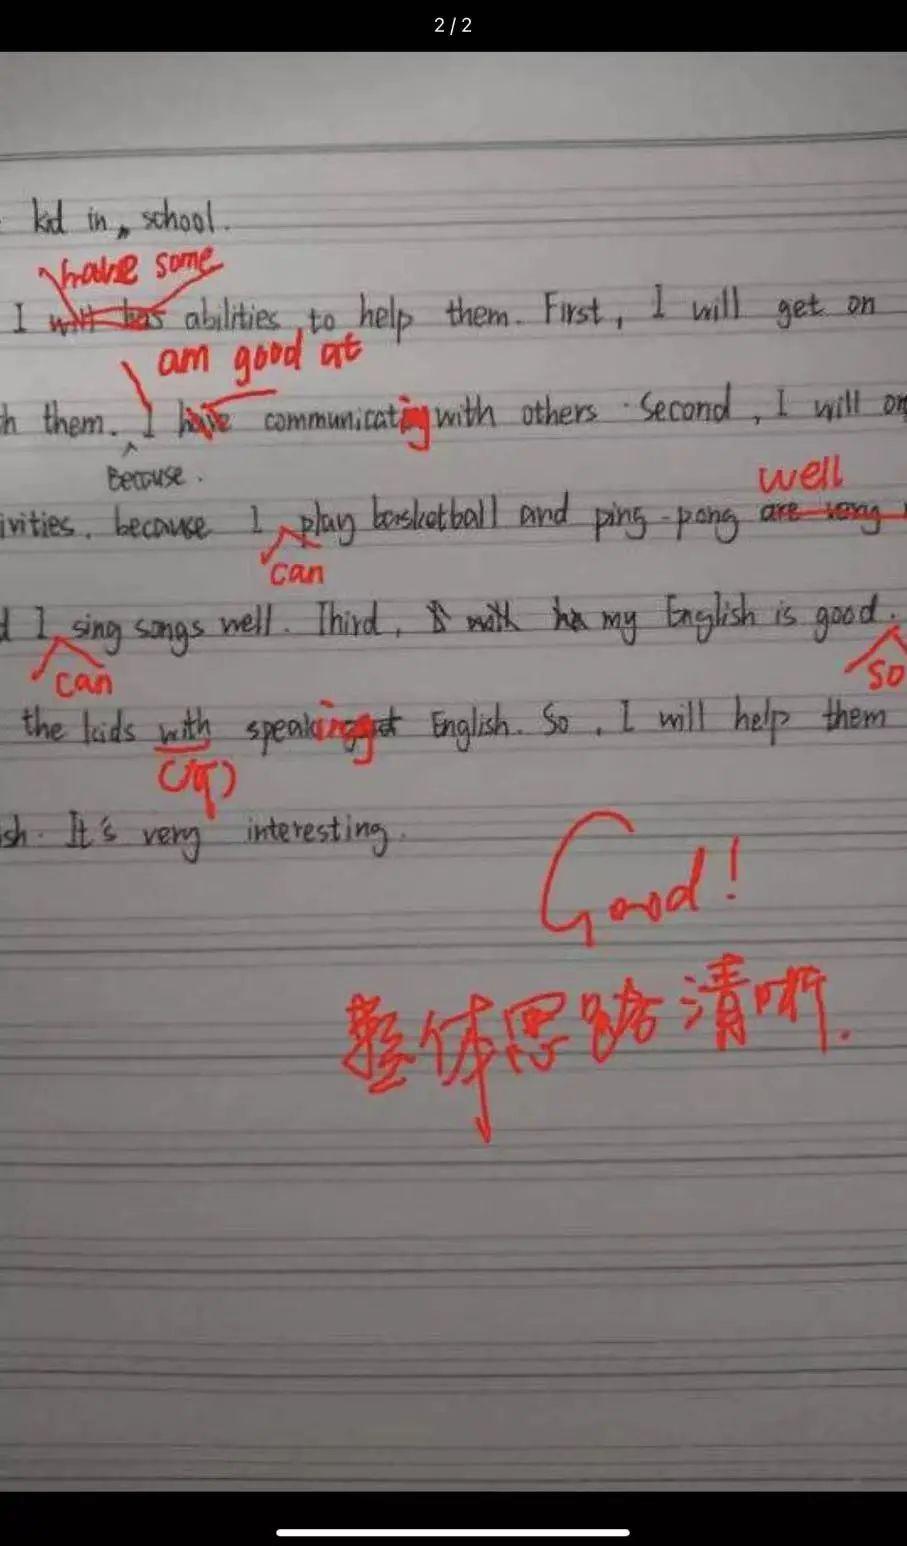 2/2
kid in school.
have some
I will has abilities to help them. First, I will get on
am good at
h them. I have communicating with others. Second, I will
Because.
well
ivities, because I play basketball and ping-pong are very
can
d I sing songs well. Third, my English is good.
can
so
the kids with speaking English. So, I will help them
ish. It's very interesting.
Good!
整体思路清晰.